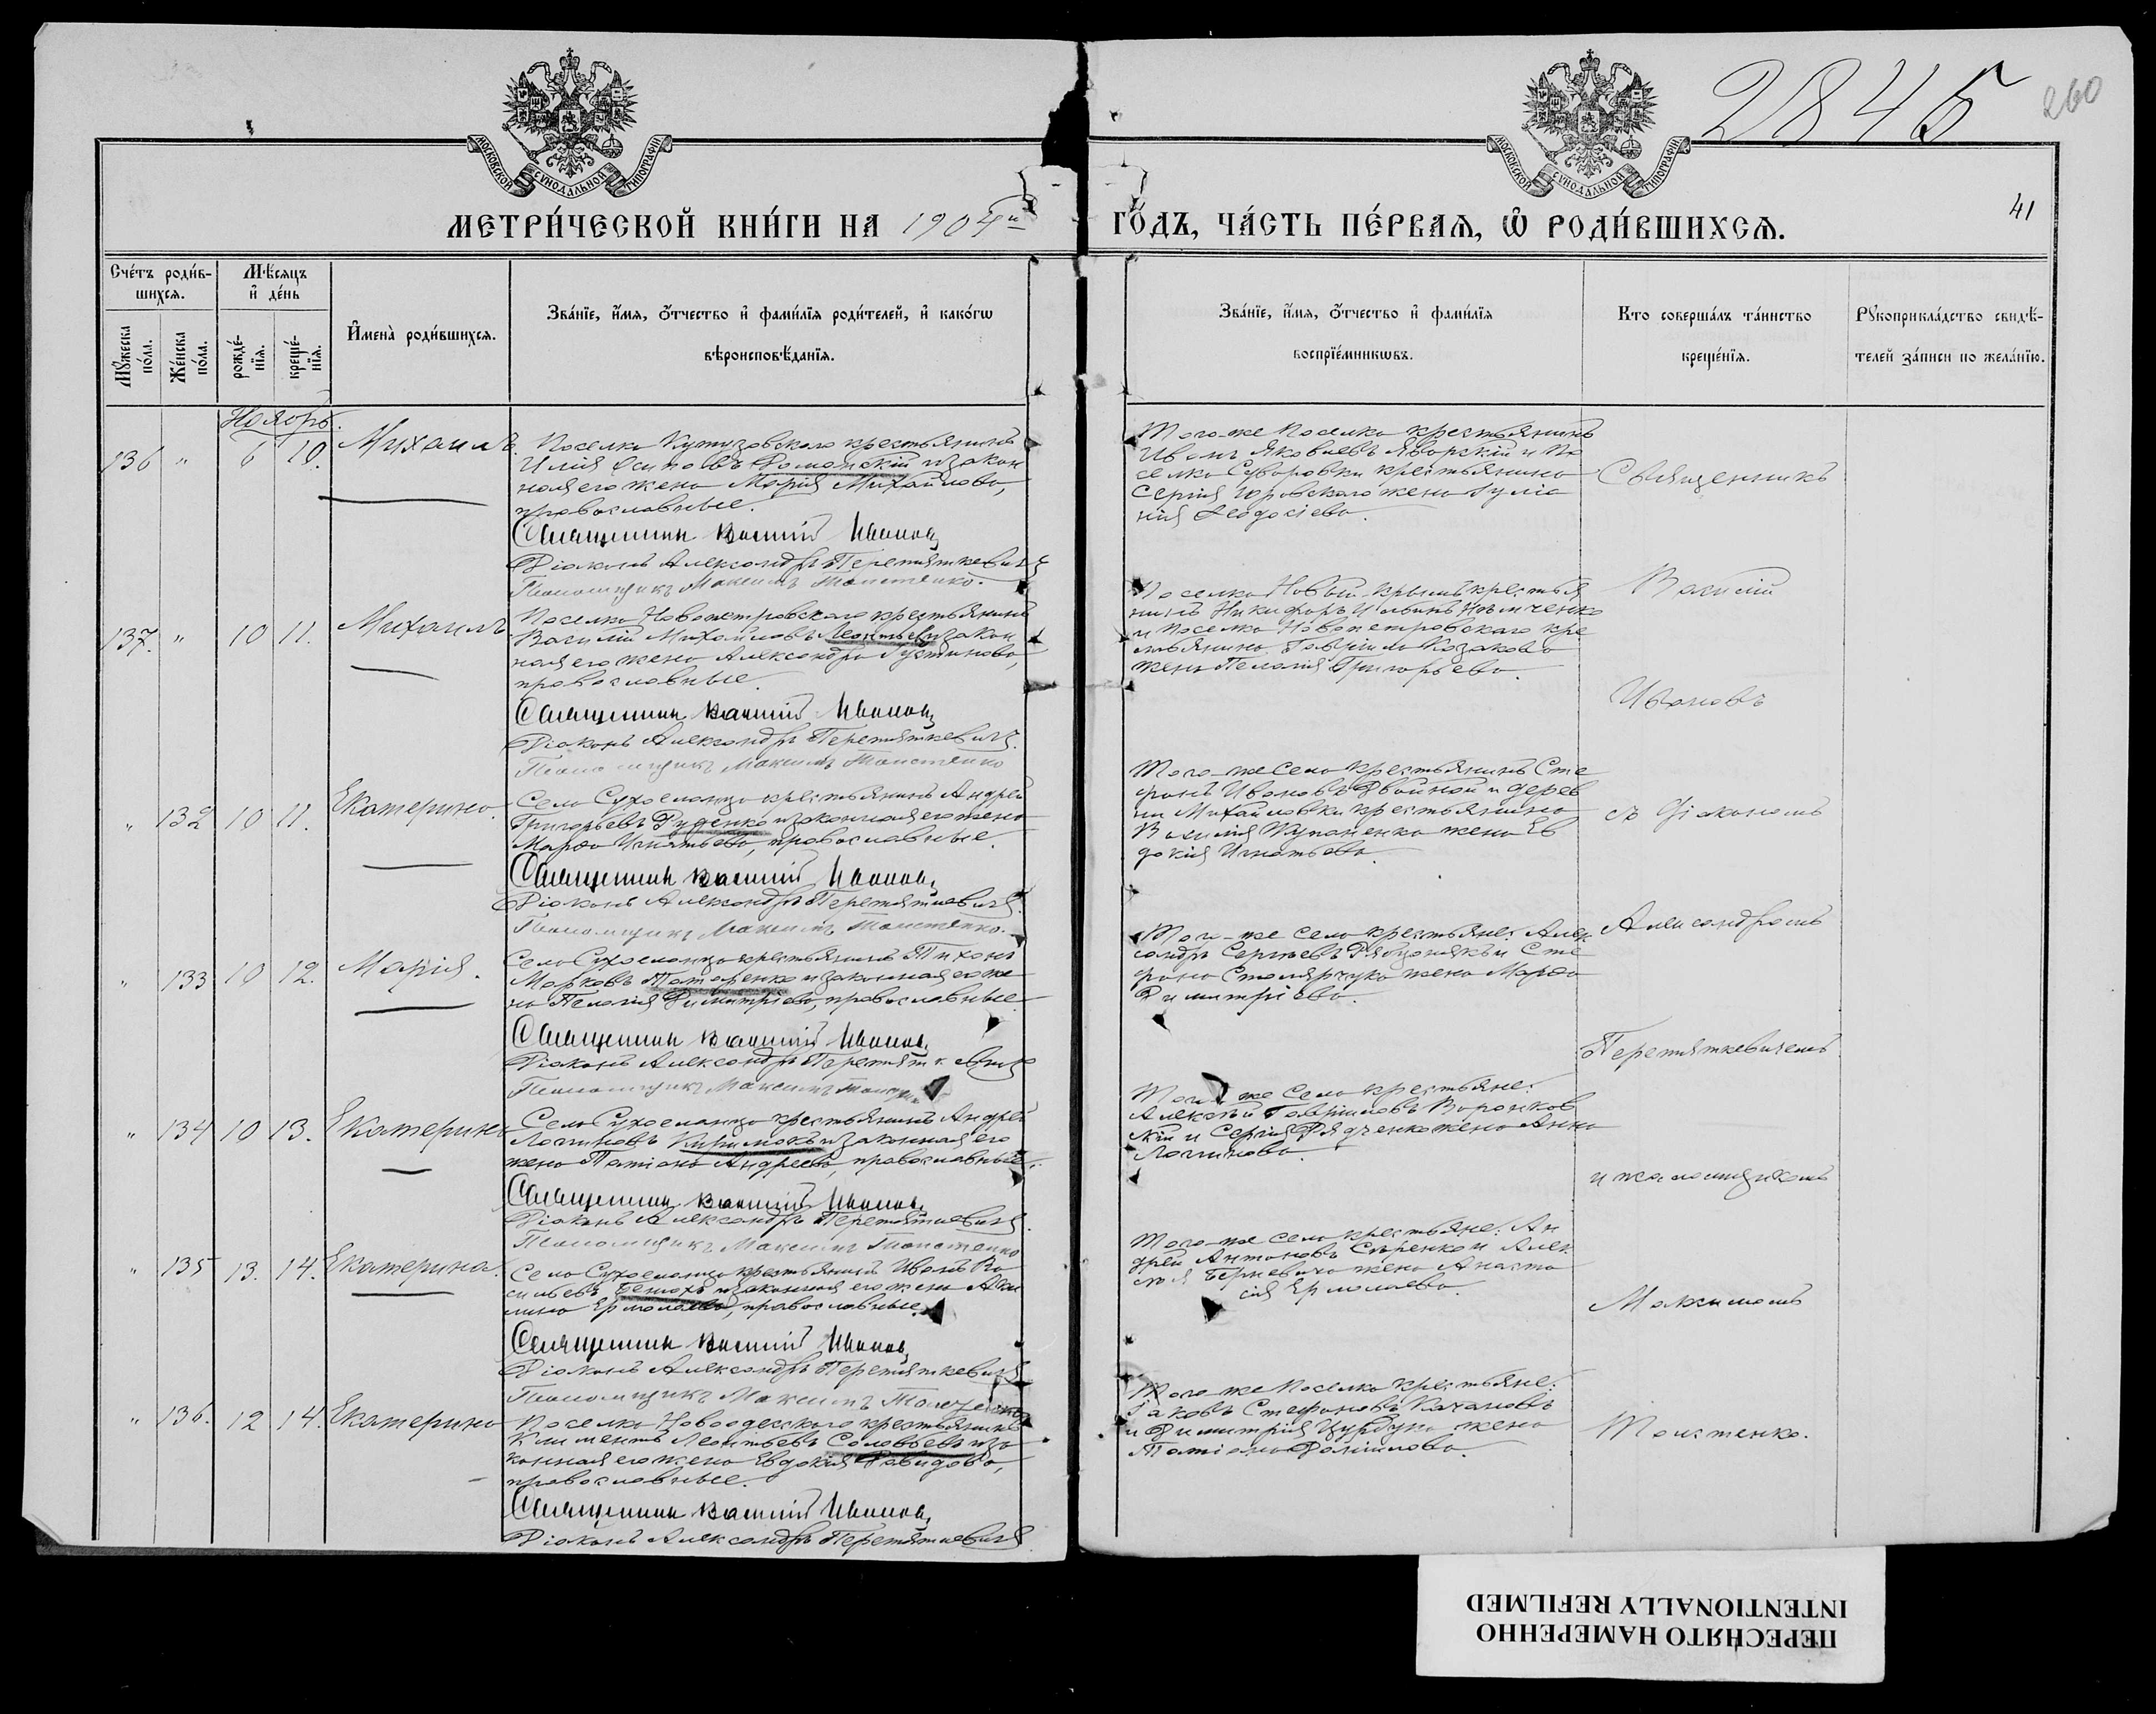 2845
260
МОСКОВСКОЙ СѴНОДАЛЬНОЙ ТИПОГРАФІИ
МОСКОВСКОЙ СѴНОДАЛЬНОЙ ТИПОГРАФІИ
41
МЕТРИ́ЧЕСКОЙ КНИ́ГИ НА 1904й ГО́ДЪ, ЧА́СТЬ ПЕ́РВАѦ, Ѽ РОДИ́ВШИХСѦ.
Сче́тъ роди́в-
шихсѧ.
Мꙋ́жеска по́ла.
Же́нска по́ла.
Мѣ́сѧцъ
и҆ де́нь
рожде́-
нїѧ.
креще́-
нїѧ.
И҆мена̀ роди́вшихсѧ.
Зва́нїе, и҆́мѧ, ѻ҆́тчество и҆ фами́лїѧ роди́телей, и҆ како́гѡ
вѣроисповѣ́данїѧ.
Зва́нїе, и҆́мѧ, ѻ҆́тчество и҆ фами́лїѧ
воспрїе́мникѡвъ.
Кто соверша́лъ та́инство
креще́нїѧ.
Рꙋкоприкла́дство свидѣ́-
телей за́писи по жела́нїю.
Ноябрь.
136 " 6 10. Михаилъ.
Поселка Кутузовскаго крестьянинъ
Илія Осиповъ Романскій и закон
ная его жена Марія Михайлова,
православные.
Священник Василий Иванов
Діаконъ Александръ Перетяткевичъ
Псаломщикъ Максимъ Толстенко.
Того-же поселка крестьянинъ
Иванъ Яковлевъ Яворскій и по
селка Суворовки крестьянина
Сергія Юровскаго жена Іуліа
нія Ѳеодосіева.
137. " 10 11. Михаилъ
Поселка Новопетровскаго крестьянинъ
Василій Михайловъ Леонтьев и закон
ная его жена Александра Іустинова,
православные.
Священник Василий Иванов
Діаконъ Александръ Перетяткевичъ.
Псаломщикъ Максимъ Толстенко
Поселка Новый-Крымъ крестья
нинъ Никифоръ Ильинъ Нѣмченко
и поселка Новопетровскаго кре
стьянина Гавріила Казакова
жена Пелагія Григорьева.
" 132 10 11. Екатерина.
Села Сухоеланца крестьянинъ Андрей
Григорьевъ Руденко и законная его жена
Марѳа Игнатьева, православные.
Священник Василий Иванов
Діаконъ Александръ Перетяткевичъ.
Псаломщикъ Максимъ Толстенко.
Того-же села крестьянинъ Сте
фанъ Ивановъ Двойной и дерев
ни Михайловки крестьянина
Василія Купаненка жена Ев
докія Игнатьева.
" 133 10 12. Марія.
Села Сухоеланца крестьянинъ Тихонъ
Марковъ Татаренко и законная его же
на Пелагія Димитріева, православные
Священник Василий Иванов
Діаконъ Александръ Перетяткевичъ
Псаломщикъ Максимъ
Того-же села крестьяне: Алек
сандръ Сергѣевъ и Сте
фана Столярчука жена Марѳа
Димитріева.
" 134 10 13. Екатерина
Села Сухоеланца крестьянинъ Андрей
Логгиновъ и законная его
жена Татіана Андреева, православные.
Священник Василий Иванов
Діаконъ Александръ Перетяткевичъ.
Псаломщикъ Максимъ Толстенко
Того-же села крестьяне:
Алексѣй Гавріиловъ Воронков
скій и Сергія Рядченка жена Анна
Логгинова.
" 135 13. 14. Екатерина.
Села Сухоеланца крестьянинъ Иванъ Ва
сильевъ и законная его жена Аки
лина Ермолаева, православные.
Священник Василий Иванов
Діаконъ Александръ Перетяткевичъ
Псаломщикъ Максимъ
Того-же села крестьяне: Ан
дрей Антоновъ Сѣренко и Алек
сѣя жена Анаста
сія Ермолаева.
" 136. 12 14. Екатерина
Поселка Новоодесскаго крестьянинъ
Климентъ Леонтьевъ Соловьевъ и за
конная его жена Евдокія Давидова,
православные.
Священник Василий Иванов
Діаконъ Александръ Перетяткевичъ
Того-же поселка крестьяне:
Іаковъ Стефановъ Качановъ
и Димитрія жена
Татіана
Священникъ
Василій
Ивановъ
съ діакономъ
Александромъ
Перетяткевичемъ
и псаломщикомъ
Максимомъ
Толстенко.
ПЕРЕСНЯТО НАМЕРЕННО
INTENTIONALLY REFILMED